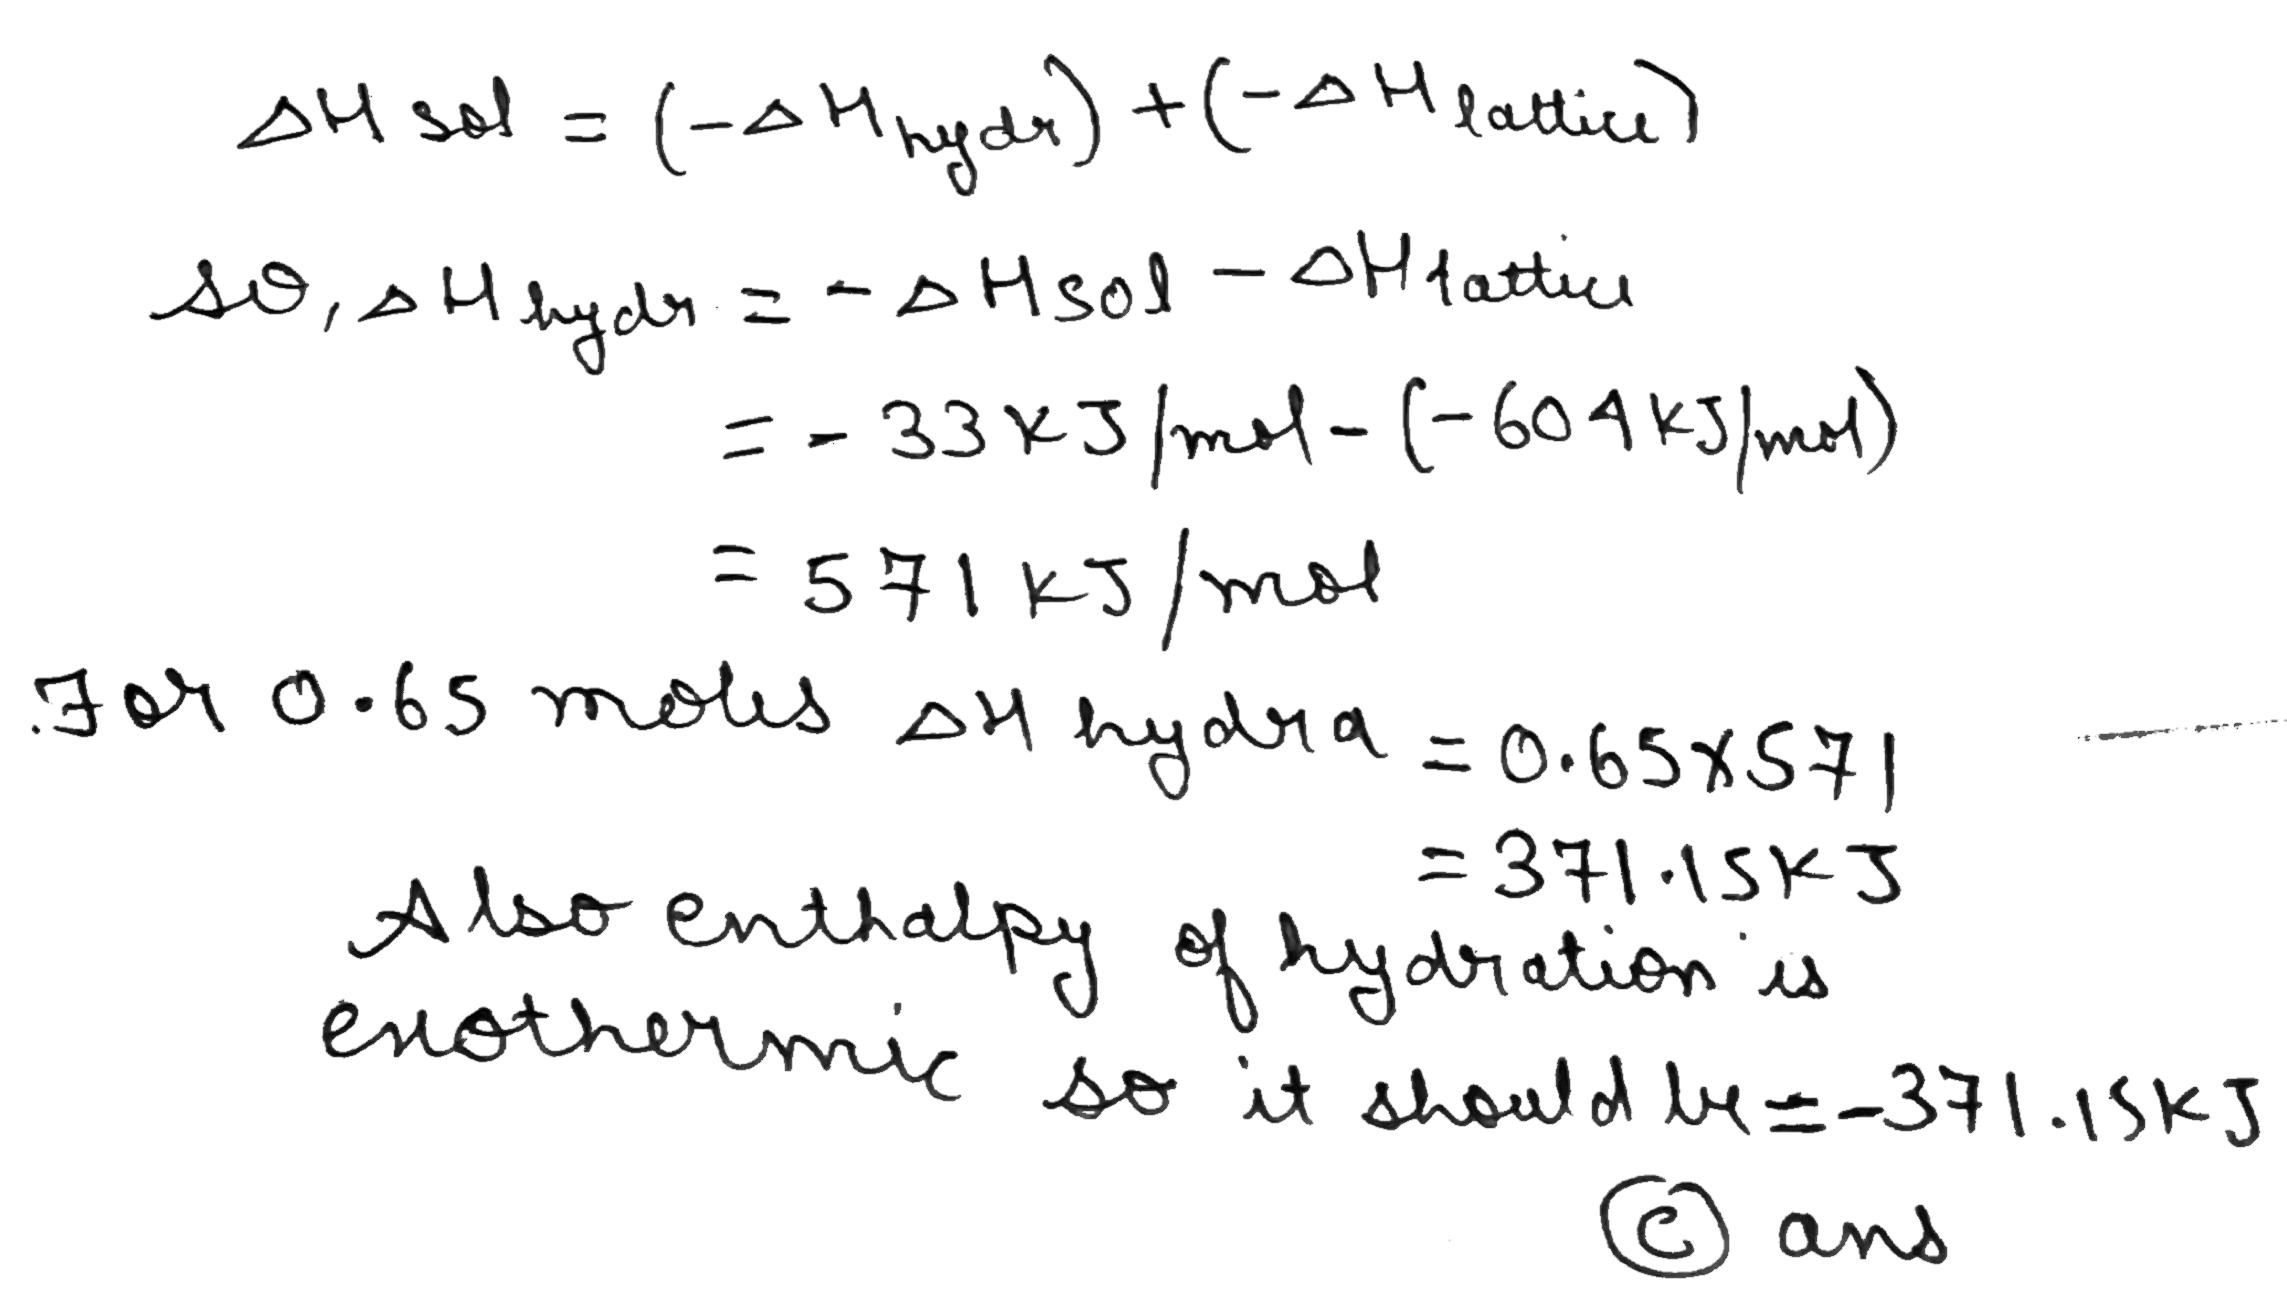 ΔH sol = (-ΔH hydr) + (-ΔH lattice)
so, ΔH hydr = -ΔH sol - ΔH lattice
= - 33 KJ/mol - (-604 KJ/mol)
= 571 KJ/mol
For 0.65 moles ΔH hydra = 0.65 x 571
= 371.15 KJ
Also enthalpy of hydration is
exothermic so it should be = -371.15 KJ
(C) ans